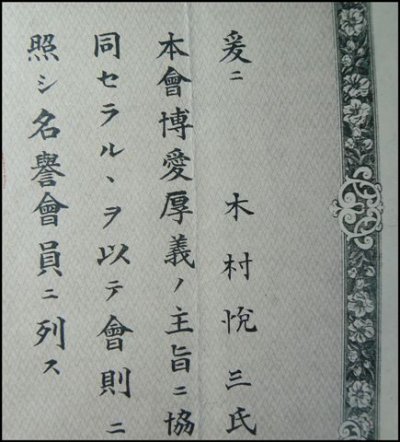 爰ニ　木村悦三氏
本會博愛厚義ノ主旨ニ協
同セラルヽヲ以テ會則ニ
照シ名譽會員ニ列ス